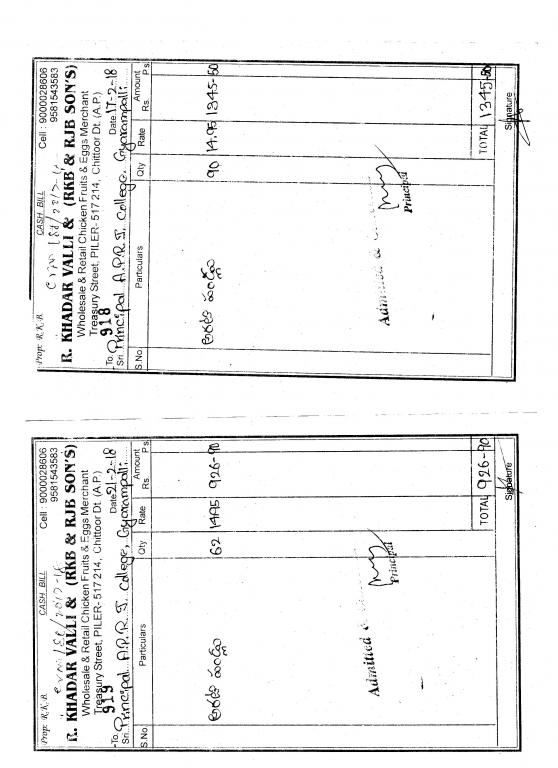 Prop: R.K.B. CASH BILL Cell : 9000028606
9581543583
R. KHADAR VALLI & (RKB & RJB SON'S)
Wholesale & Retail Chicken Fruits & Eggs Merchant
Treasury Street, PILER- 517 214, Chittoor Dt. (A.P.)
918
To. Date 17-2-18
Sri. Principal A.P.R.J. College, Gyarampalli
S.No. Particulars Qty Rate Amount
Rs. Ps.
అరటి పండ్లు 90 14.95 1345-50
Admitted &
Principal
TOTAL 1345-50
Signature
Prop: R.K.B. CASH BILL Cell : 9000028606
9581543583
R. KHADAR VALLI & (RKB & RJB SON'S)
Wholesale & Retail Chicken Fruits & Eggs Merchant
Treasury Street, PILER- 517 214, Chittoor Dt. (A.P.)
919
To. Date 21-2-18
Sri. Principal A.P.R.J. College, Gyarampalli
S.No. Particulars Qty Rate Amount
Rs. Ps.
అరటి పండ్లు 62 14.95 926-90
Admitted &
Principal
TOTAL 926-90
Signature